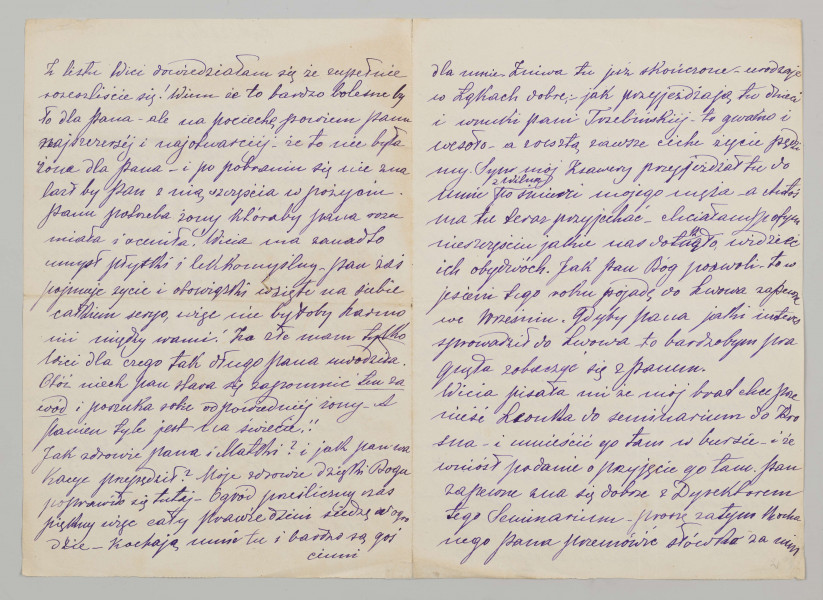 Z listu Wici dowiedziałam się że zupełnie
rozeszliście się! Wiem że to bardzo bolesne by
ło dla Pana - ale na pociechę powiem Panu
najszczerzej i najotwarciej - że to nie była
żona dla Pana - i po pobraniu się nie zna
lazł by Pan z nią szczęścia w pożyciu.
Panu potrzeba żony któraby pana rozu
miała i oceniła! Wicia ma zanadto
umysł płytki i lekkomyślny - Pan zaś
pojmuje życie i obowiązki wzięte na siebie
całkiem seryo, więc nie byłoby harmo
nii między wami! Za złe mam tylko
Wici dla czego tak długo pana uwodziła.
Otóż niech Pan stara się zapomnieć ten za
wód i poszuka sobie odpowiedniéj żony - A
panien tyle jest na świecie!!
Jak zdrowie pana i Matki? i jak pan wa
kacye przepędził? Moje zdrowie dzięki Bogu
poprawiło się tutaj - Ogród prześliczny czas
piękny więc cały prawie dzień siedzę w ogro
dzie - Kochają mnie tu i bardzo są goś
cinni
dla mnie. Żniwa tu już skończone - urodzaje
w Łąkach dobre; - jak przyjeżdżają tu dzieci
i wnuki pani Trzebińskiej - to gwarno i
wesoło - a zresztą zawsze ciche życie pędzi
my. Syn mój Ksawery przyjeżdżał tu do
z Wilna
mnie po śmierci mojego męża - a
ma tu teraz przyjechać - chciałam po tym
nieszczęściu jakie nas dotknęło, widzieć
ich obydwóch. Jak Pan Bóg pozwoli - to w
jesieni tego roku pojadę do Lwowa zapewne
we Wrześniu. Gdyby pana jakiś interes
sprowadził do Lwowa to bardzobym pra
gnęła zobaczyć się z Panem.
Wicia pisała mi że mój brat chce prze
nieść Leonka do seminarium do Kro
sna - i umieścić go tam w bursie - i że
wniósł podanie o przyjęcie go tam. Pan
zapewne zna się dobrze z Dyrektorem
tego Seminarium - proszę zatym Kocha
nego Pana przemówić słówko za nim